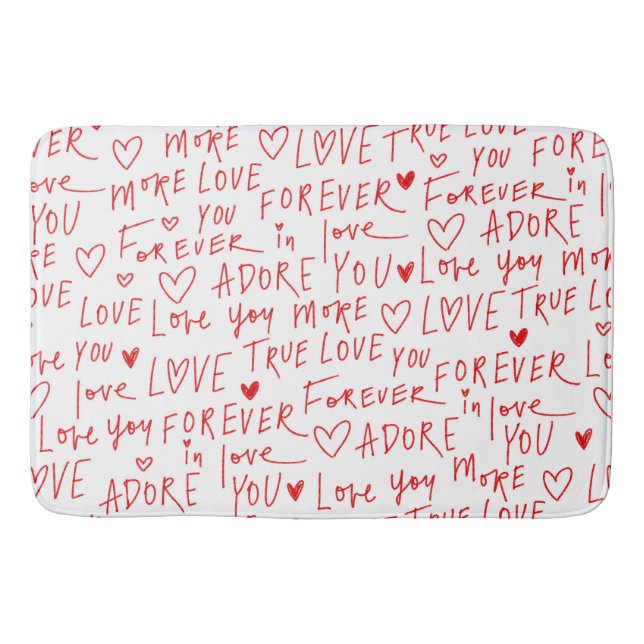 EVER MORE LOVE TRUE LOVE
love MORE LOVE FOREVER YOU FOREVER
YOU YOU FOREVER in
RE FOREVER in love ADORE
ADORE YOU Love you MORE
OVE LOVE Love you MORE LOVE TRUE LOVE
YOU LOVE TRUE LOVE YOU FOREVER
love FOREVER in love
Love you FOREVER ADORE YOU
OVE in love MORE LOVE
ADORE YOU Love you
TRUE LOVE